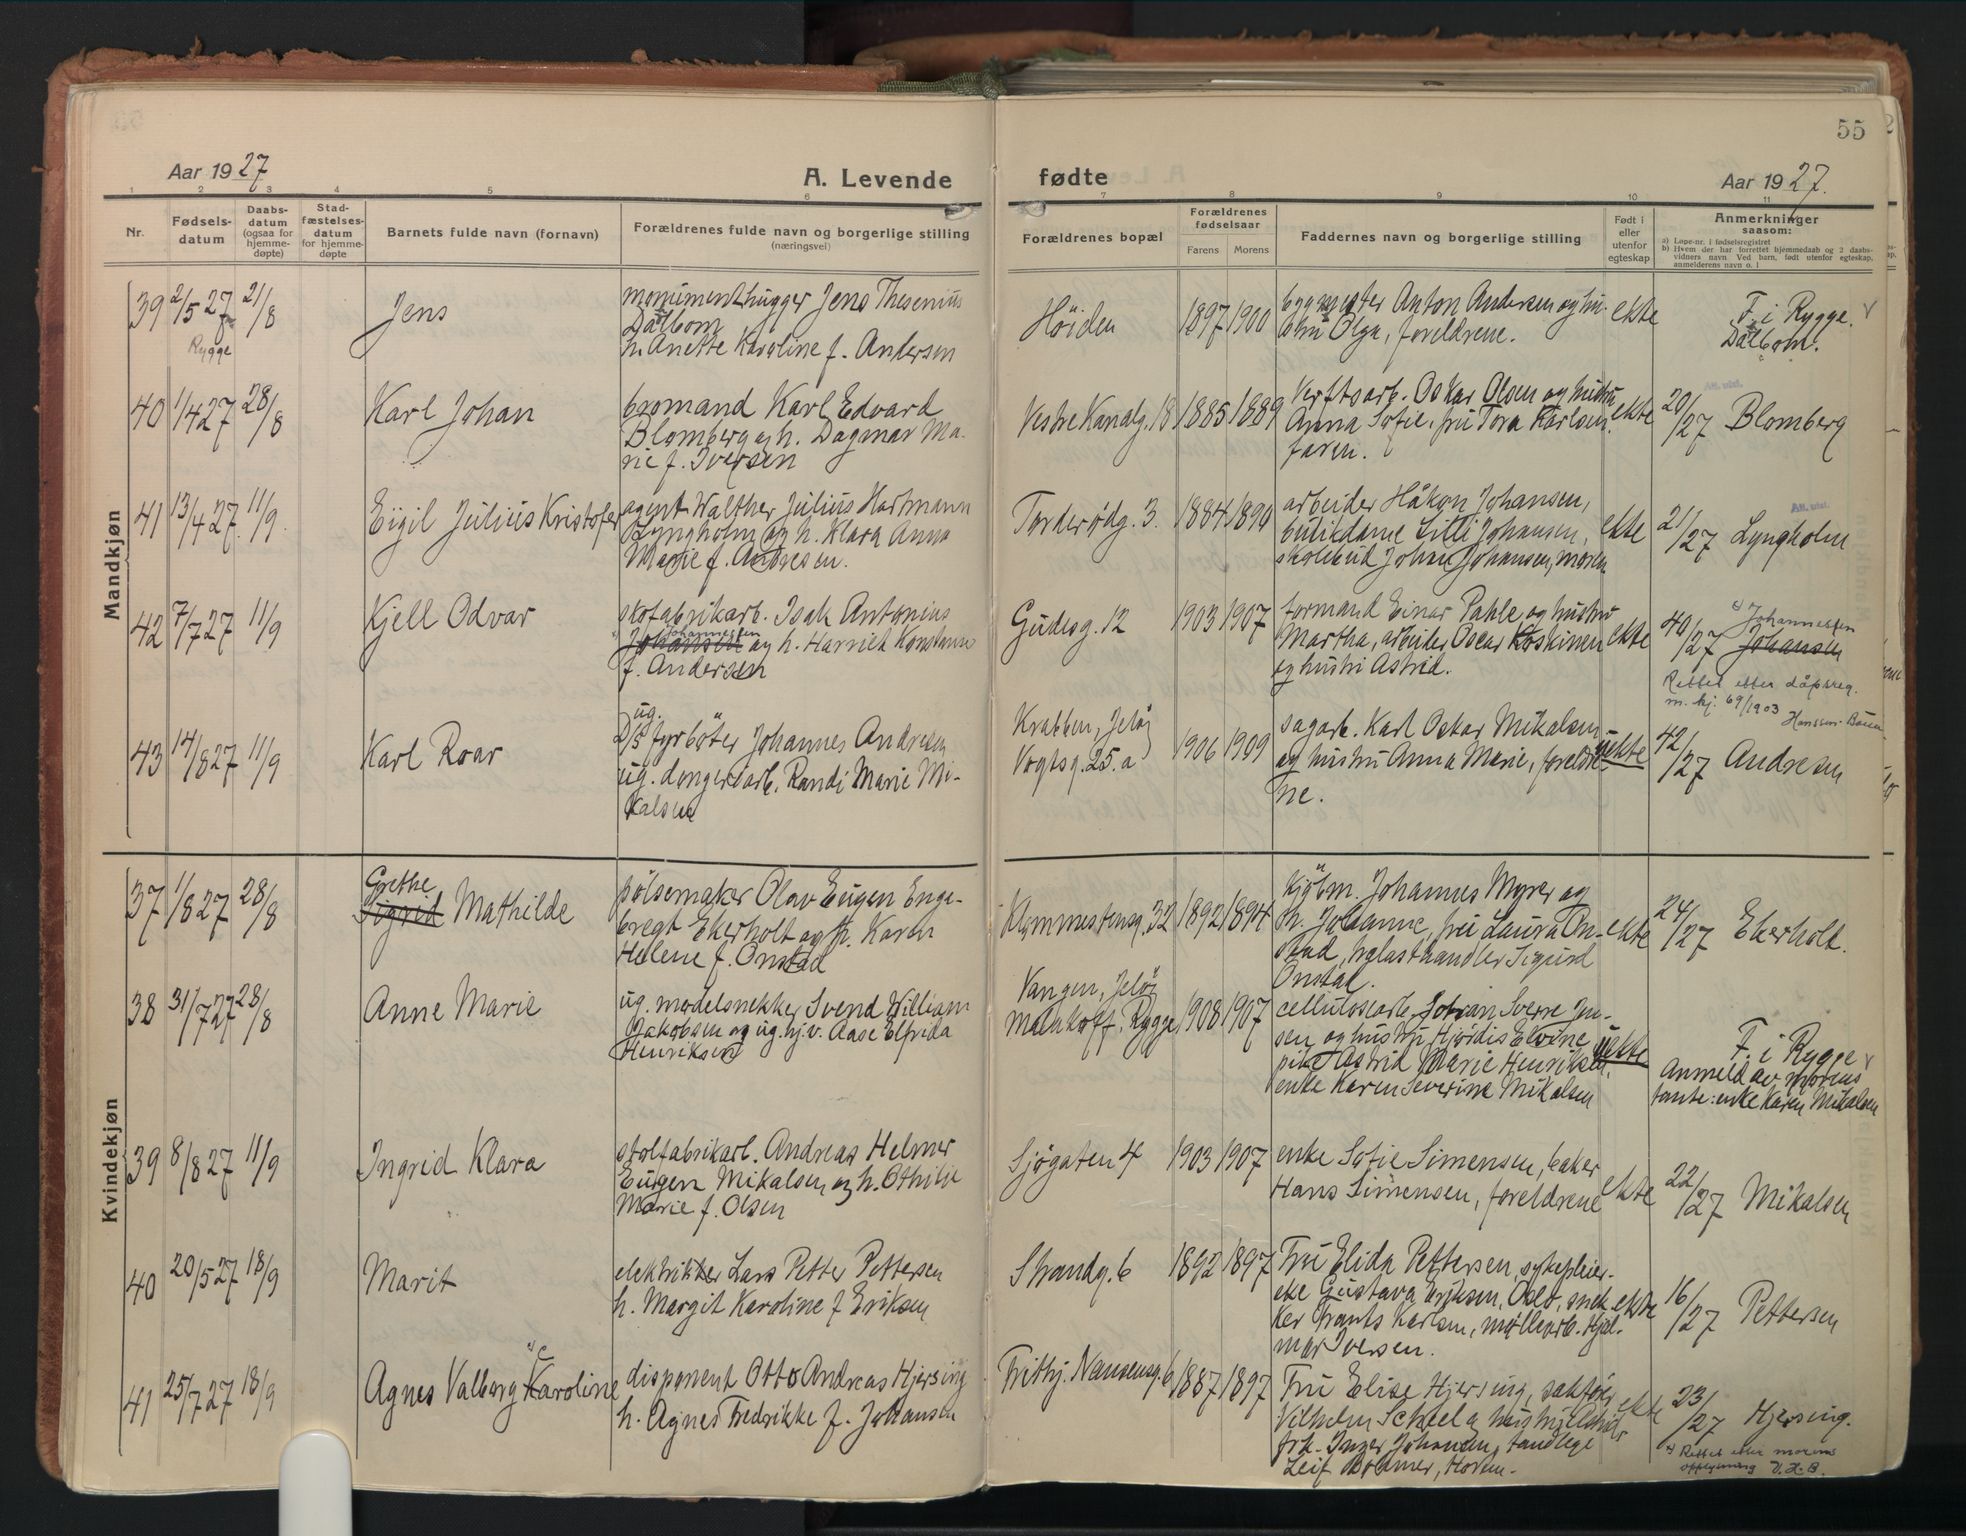 55
Aar 1927
A. Levende
fødte
Aar 1927.
1 2 3 4 5 6 7 8 9 10 11
Nr.
Fødsels-
datum
Daabs-
datum
(ogsaa for
hjemme-
døpte)
Stad-
fæstelses-
datum
for hjemme-
døpte
Barnets fulde navn (fornavn)
Forældrenes fulde navn og borgerlige stilling
(næringsvei)
Forældrenes bopæl
Forældrenes
fødselsaar
Farens Morens
Faddernes navn og borgerlige stilling
Født i
eller
utenfor
egteskap
Anmerkninger
saasom:
a) Løpe-nr. i fødselsregistret
b) Hvem der har forrettet hjemmedaab og 2 daabs-
vidners navn. Ved barn, født utenfor egteskap,
anmelderens navn o. l
Mandkjøn
39 2/5 27 21/8
Rygge
Jens
monumenthugger Jens Thesenius
Dalbom
h. Anette Karoline f. Andersen
Høiden
1897 1900
byggmester Anton Andersen og hu-
stru Olga, foreldrene.
ekte
F. i Rygge.
Dalbom.
40 1/4 27 28/8
Karl Johan
bromand Karl Edvard
Blomberg og h. Dagmar Ma-
rie f. Iversen
Vestre Kanalg. 18
1885 1889
Verftsarb. Oskar Olsen og hustru
Anna Sofie, fru Tora Karlsen,
faren.
ekte
Att. utst.
20/27 Blomberg
41 13/4 27. 11/9.
Eigil Julius Kristofer
agent Walther Julius Hartmann
Lyngholm og h. Klara Anna
Marie f. Andresen.
Torderødg. 3.
1884 1890
arbeider Håkon Johansen,
butikdame Lilli Johansen,
skolebud Johan Johansen, moren
ekte
Att. utst.
21/27 Lyngholm
42 7/7 27 11/9
Kjell Odvar
skofabrikarb. Isak Antonius
Johannessen
Johansen og h. Harriet Konstanse
f. Andersen
Gudesg. 12
1903 1907
formand Einar Pahle og hustru
Martha, arbeider Oscar Koskinen
og hustru Astrid.
ekte
40/27 Johannessen
Johansen
Rettet etter dåpsreg.
m. kj. 69/1903
43 14/8 27 11/9
Karl Roar
ug.
D/S fyrbøter Johannes Andresen
ug. dongeriarb. Randi Marie Mi-
kalsen
Krabben, Jeløy
Vogtsg. 25. a
1906 1909
sagarb. Karl Oskar Mikalsen
og hustru Anna Marie, foreldre-
ne.
uekte
42/27 Andresen
Kvindekjøn
37 1/8 27 28/8
Grethe
Sigrid Mathilde
pølsemaker Olav Eugen Enge-
bregt Ekerholt og h. Karen
Helene f. Onstad
Klommestensg. 32
1892 1894
Kjøbm. Johannes Myrer og
h. Johanne, fru Laura On-
stad, trelasthandler Sigurd
Onstad.
ekte
24/27 Ekerholt.
38 31/7 27 28/8
Anne Marie
ug. modelsnekker Svend William
Jakobsen og ug. hj.v. Aase Elfrida
Henriksen
Vangen, Jeløy
Malakoff, Rygge
1908 1907
cellulosearb. Johan Sverre Jen-
sen og hustru Hjørdis Elvine
pike Astrid Marie Henriksen,
enke Karen Severine Mikalsen
uekte
F. i Rygge
Anmeld av morens
tante: enke Karen Mikalsen
39 8/8 27 11/9
Ingrid Klara
skofabrikarb. Andreas Helmer
Eugen Mikalsen og h. Othilie
Marie f. Olsen
Sjøgaten 4
1903 1907
enke Sofie Simensen, baker
Hans Simensen, foreldrene
ekte
22/27 Mikalsen
40 20/5 27 18/9
Marit
elektriker Lars Petter Pettersen
h. Margit Karoline f. Eriksen
Strandg. 6
1892 1897
Fru Elida Pettersen, sykepleier-
ske Gustava Eriksen, Oslo, snek-
ker Frants Karlsen, møllearb. Hjal-
mar Iversen.
ekte
16/27 Pettersen
41 25/7 27 18/9
Agnes Valborg Karoline
disponent Otto Andreas Hjersing
h. Agnes Fredrikke f. Johansen
Frithj. Nansensg. 6
1887 1897
Fru Elise Hjersing, sakfører
Vilhelm Scheel og hustru
frk. Inger Johansen, tandlege
Leif Bødmer, Horten.
ekte
23/27 Hjersing.
Rettet etter morens